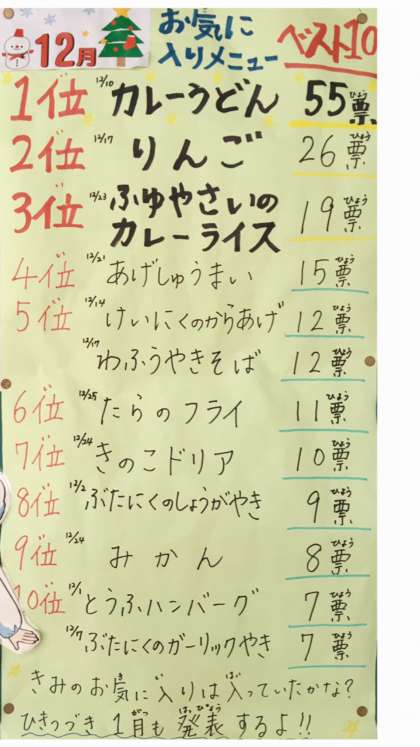 12月
お気に
入りメニュー
ベスト10
1位 12/10 カレーうどん 55票
2位 12/17 りんご 26票
3位 12/23 ふゆやさいの
カレーライス 19票
4位 12/21 あげしゅうまい 15票
5位 12/14 けいにくのからあげ 12票
12/17 わふうやきそば 12票
6位 12/25 たらのフライ 11票
7位 12/24 きのこドリア 10票
8位 12/2 ぶたにくのしょうがやき 9票
9位 12/24 みかん 8票
10位 12/1 とうふハンバーグ 7票
12/7 ぶたにくのガーリックやき 7票
きみのお気に入りは入っていたかな?
ひきつづき1月も発表するよ!!